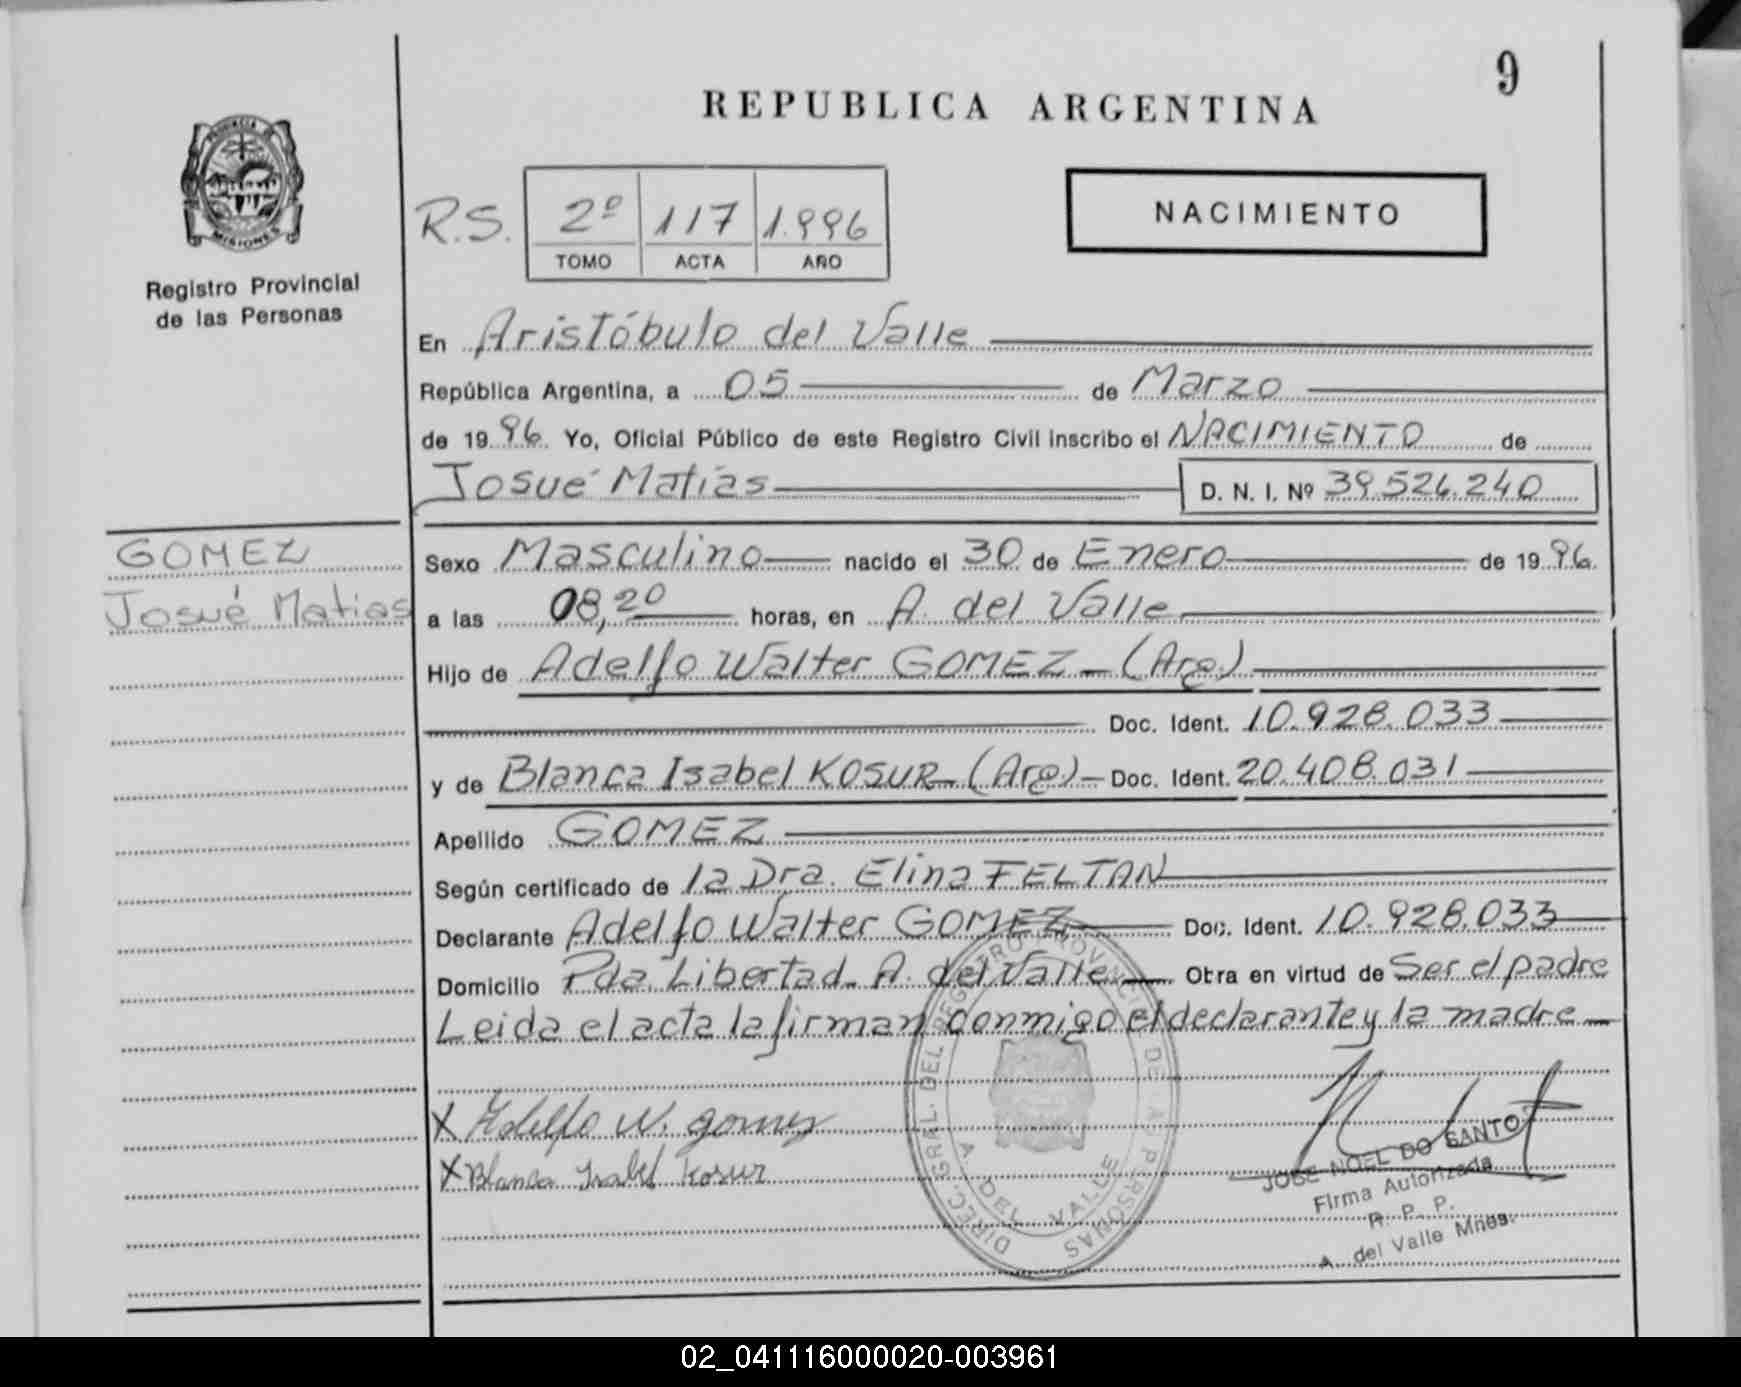 9
REPUBLICA ARGENTINA
PROVINCIA DE
MISIONES
Registro Provincial
de las Personas
NACIMIENTO
R.S. 2º 117 1.996
TOMO ACTA AÑO
En Aristóbulo del Valle
República Argentina, a 05 de Marzo
de 1996. Yo, Oficial Público de este Registro Civil inscribo el NACIMIENTO de
Josué Matías D. N. I. Nº 39.526.240
GOMEZ
Josué Matias
Sexo Masculino nacido el 30 de Enero de 1996.
a las 08,20 horas, en A. del Valle
Hijo de Adelfo Walter GOMEZ - (Arg.)
Doc. Ident. 10.928.033
y de Blanca Isabel KOSUR - (Arg) - Doc. Ident. 20.408.031
Apellido GOMEZ
Según certificado de la Dra. Elina FELTAN
Declarante Adelfo Walter GOMEZ Doc. Ident. 10.928.033
Domicilio Pda. Libertad - A. del Valle Obra en virtud de Ser el padre
Leida el acta la firman conmigo el declarante y la madre
X Adelfo W. gomez
X Blanca Isabel Kosur
DIREC. GRAL. DEL REGISTRO PROVINCIAL DE LAS PERSONAS
A. DEL VALLE
JOSE NOEL DO SANTOS
Firma Autorizada
R. P. P.
A. del Valle Mnes.
02_041116000020-003961